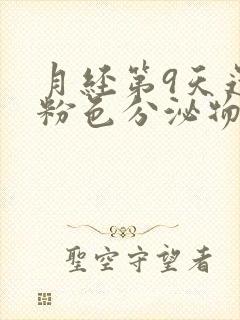 月经第9天
粉色分泌物
聖空守望者